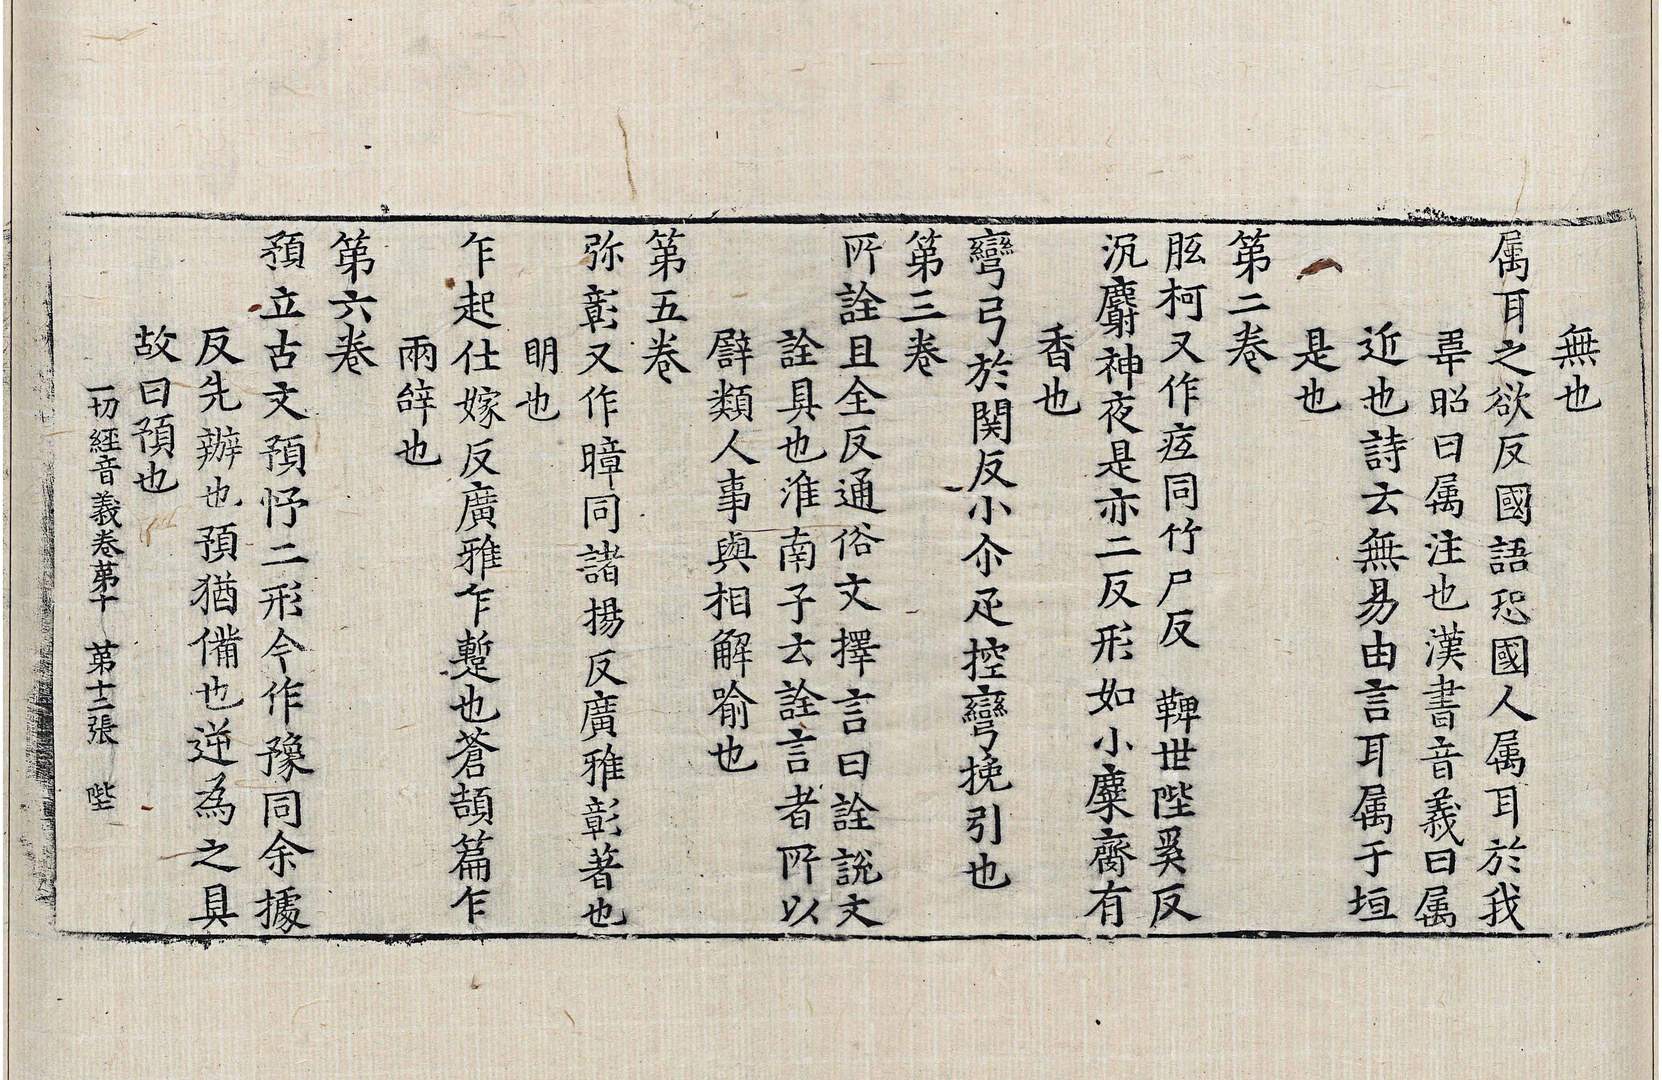 無也
属耳之欲反國語恐國人属耳於我
韋昭曰属注也漢書音義曰属
近也詩云無易由言耳属于垣
是也
第二卷
胘柯又作痃同竹尸反 鞞世陛奚反
沉麝神夜是亦二反形如小麋齊有
香也
彎弓於関反小尒疋控彎挽引也
第三卷
所詮且全反通俗文擇言曰詮說文
詮具也淮南子云詮言者所以
譬類人事與相解喻也
第五卷
弥彰又作暲同諸揚反廣雅彰著也
明也
乍起仕嫁反廣雅乍蹔也蒼頡篇乍
兩辝也
第六卷
預立古文預忬二形今作豫同余據
反先辦也預猶備也逆為之具
故曰預也
一切經音義卷第十 第十三張 陛